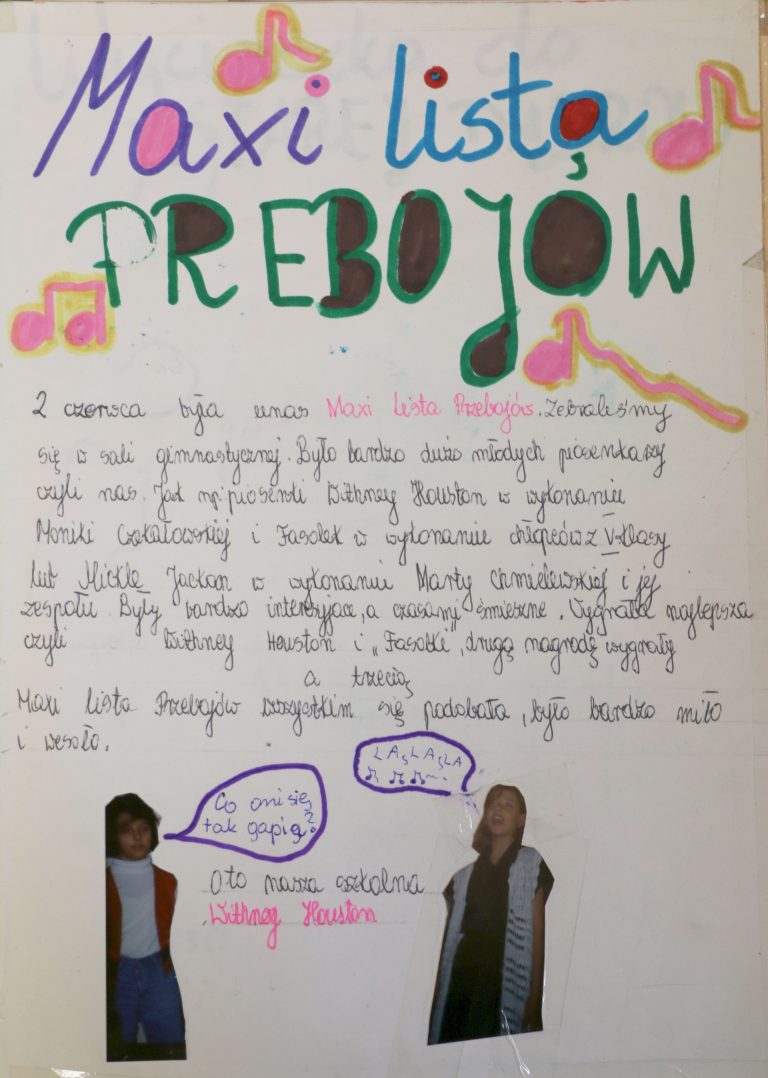 Maxi lista
PREBOJÓW
2 czerwca była unas Maxi Lista Przebojów. Zebraliśmy
się w sali gimnastycznej. Było bardzo dużo młodych piosenkarzy
czyli nas. Jak np. piosenki Withney Houston w wykonaniu
Moniki Czekałowskiej i Fasolek w wykonaniu chłopców z V klasy
lub Mickle Jackson w wykonaniu Marty Chmielewskiej i jej
zespołu. Były bardzo interesujace, a czasami śmieszne. Wygrała najlepsza
czyli Withney Houston i „Fasolki", drugą nagrodę wygrały
a trzecią
Maxi lista Przebojów wszystkim się podobała, było bardzo miło
i wesoło.
LA, LA, LA
Co oni się
tak gapią?
Oto nasza szkolna
Withney Houston